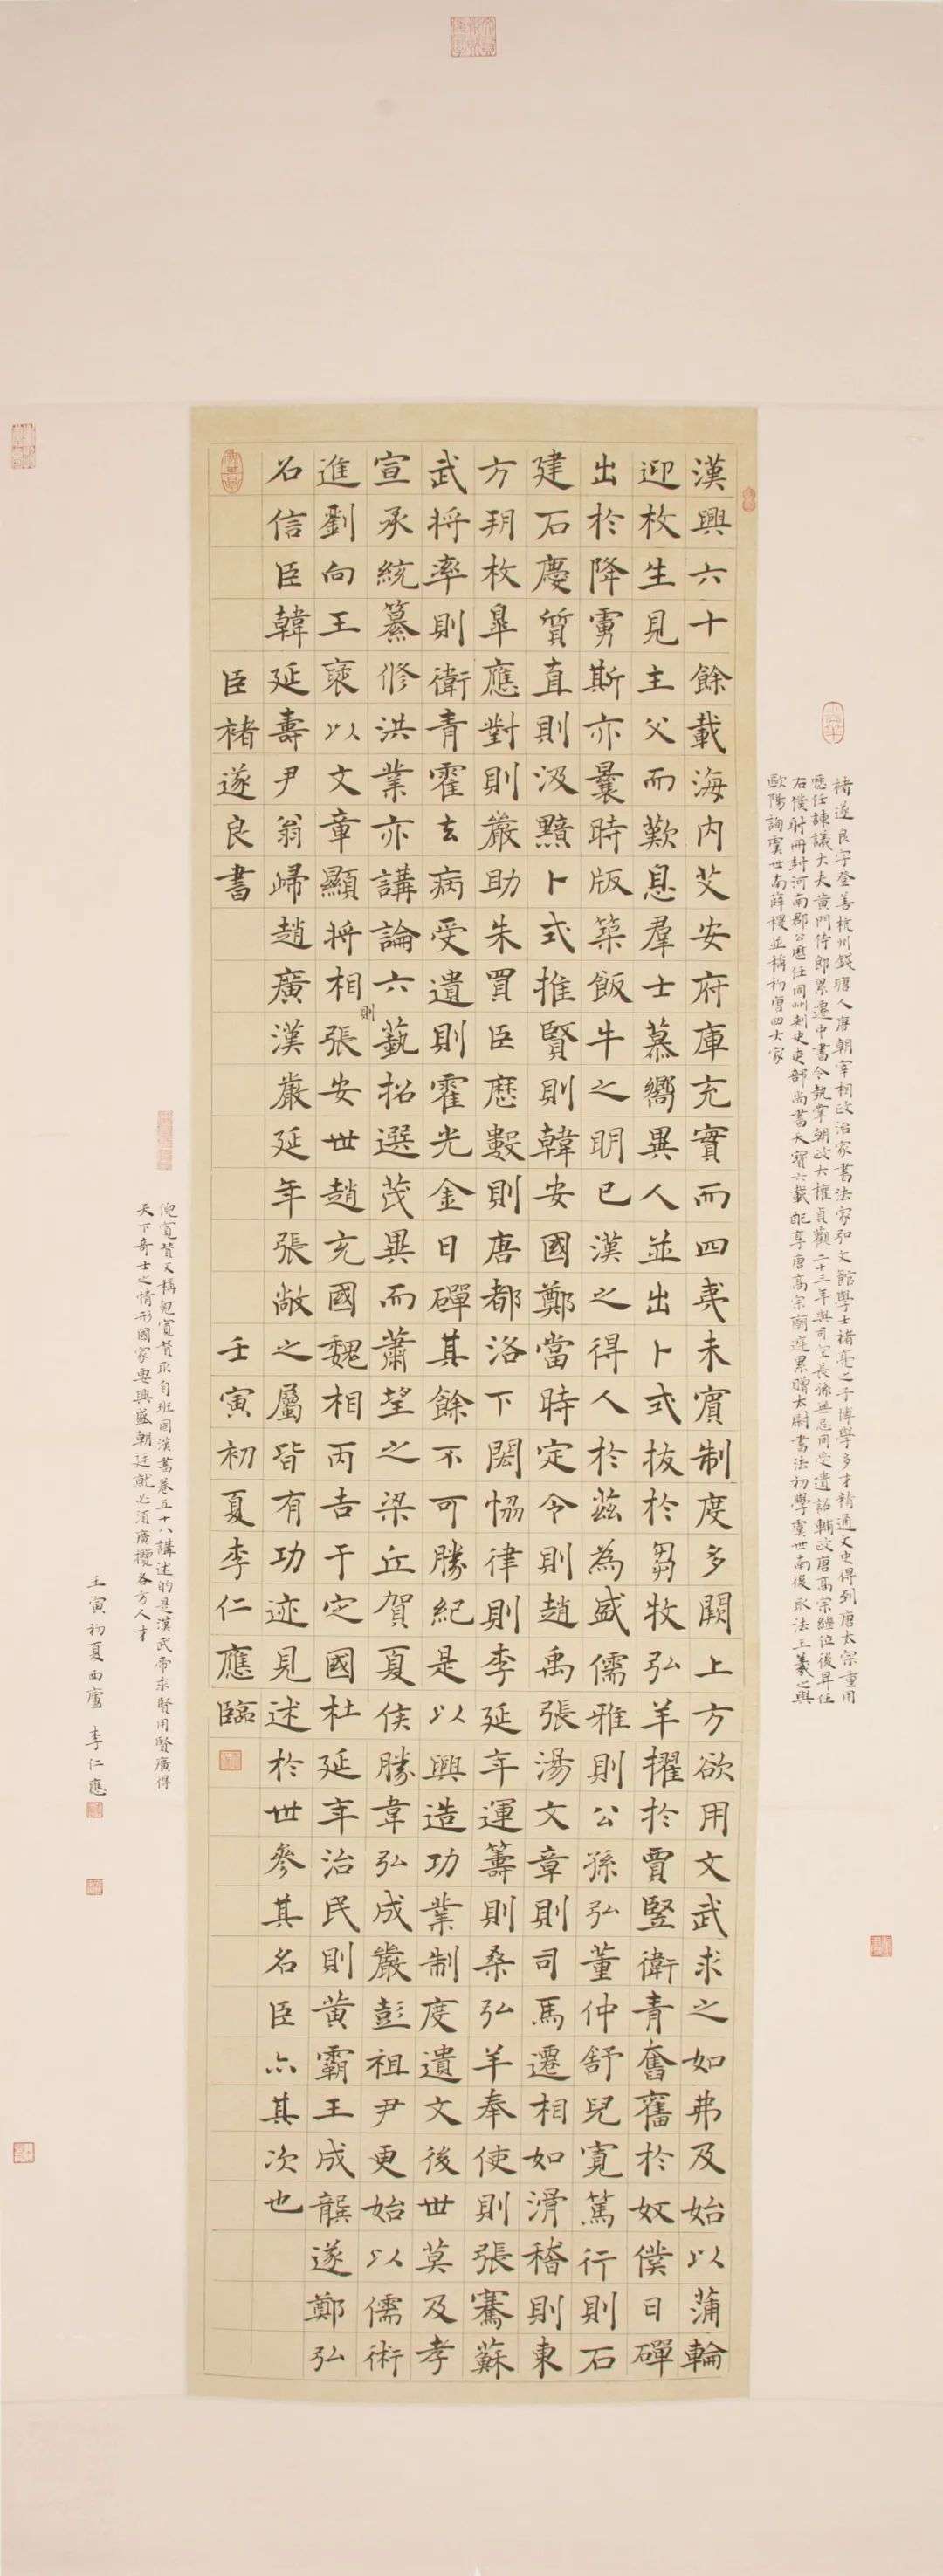 褚遂良字登善杭州錢塘人唐朝宰相政治家書法家弘文館學士褚亮之子博學多才精通文史得列唐太宗重用
歷任諫議大夫黄門侍郎累遷中書令執掌朝政大權貞觀二十三年與司空長孫無忌同受遺詔輔政唐高宗繼位後昇任
右僕射冊封河南郡公歷任同州刺史吏部尚書天寶六載配享唐高宗廟遑累贈太尉書法初學虞世南後取法王羲之與
歐陽詢虞世南薛稷並稱初唐四大家
漢興六十餘載海内艾安府庫充實而四夷未賓制度多闕上方欲用文武求之如弗及始以蒲輪
迎枚生見主父而歎息羣士慕嚮異人並出卜式拔於芻牧弘羊擢於賈豎衛青奮舊於奴僕日磾
出於降虜斯亦曩時版築飯牛之明已漢之得人於茲為盛儒雅則公孫弘董仲舒兒寬篤行則石
建石慶質直則汲黯卜式推賢則韓安國鄭當時定令則趙禹張湯文章則司馬遷相如滑稽則東
方朔枚皋應對則嚴助朱買臣歷數則唐都洛下閎恊律則李延年運籌則桑弘羊奉使則張騫蘇
武將率則衛青霍去病受遺則霍光金日磾其餘不可勝紀是以興造功業制度遺文後世莫及孝
宣承統纂修洪業亦講論六藝招選茂異而蕭望之梁丘賀夏侯勝韋弘成嚴彭祖尹更始以儒術
進劉向王褒以文章顯將相則張安世趙充國魏相丙吉于定國杜延年治民則黄霸王成龔遂鄭弘
召信臣韓延壽尹翁歸趙廣漢嚴延年張敞之屬皆有功迹見述於世參其名臣亦其次也
臣褚遂良書 壬寅初夏李仁應臨
倪寬贊又稱兒寬贊取自班固漢書卷五十八講述的是漢武帝求賢用賢廣得
天下奇士之情形國家要興盛朝廷就必須廣攬各方人才
壬寅初夏西廬 李仁應